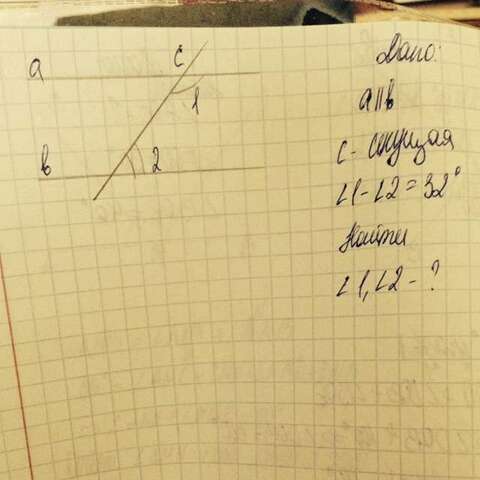 a
c
1
b
2
Дано:
a||b
c - секущая
∠1-∠2=32°
Найти
∠1,∠2-?